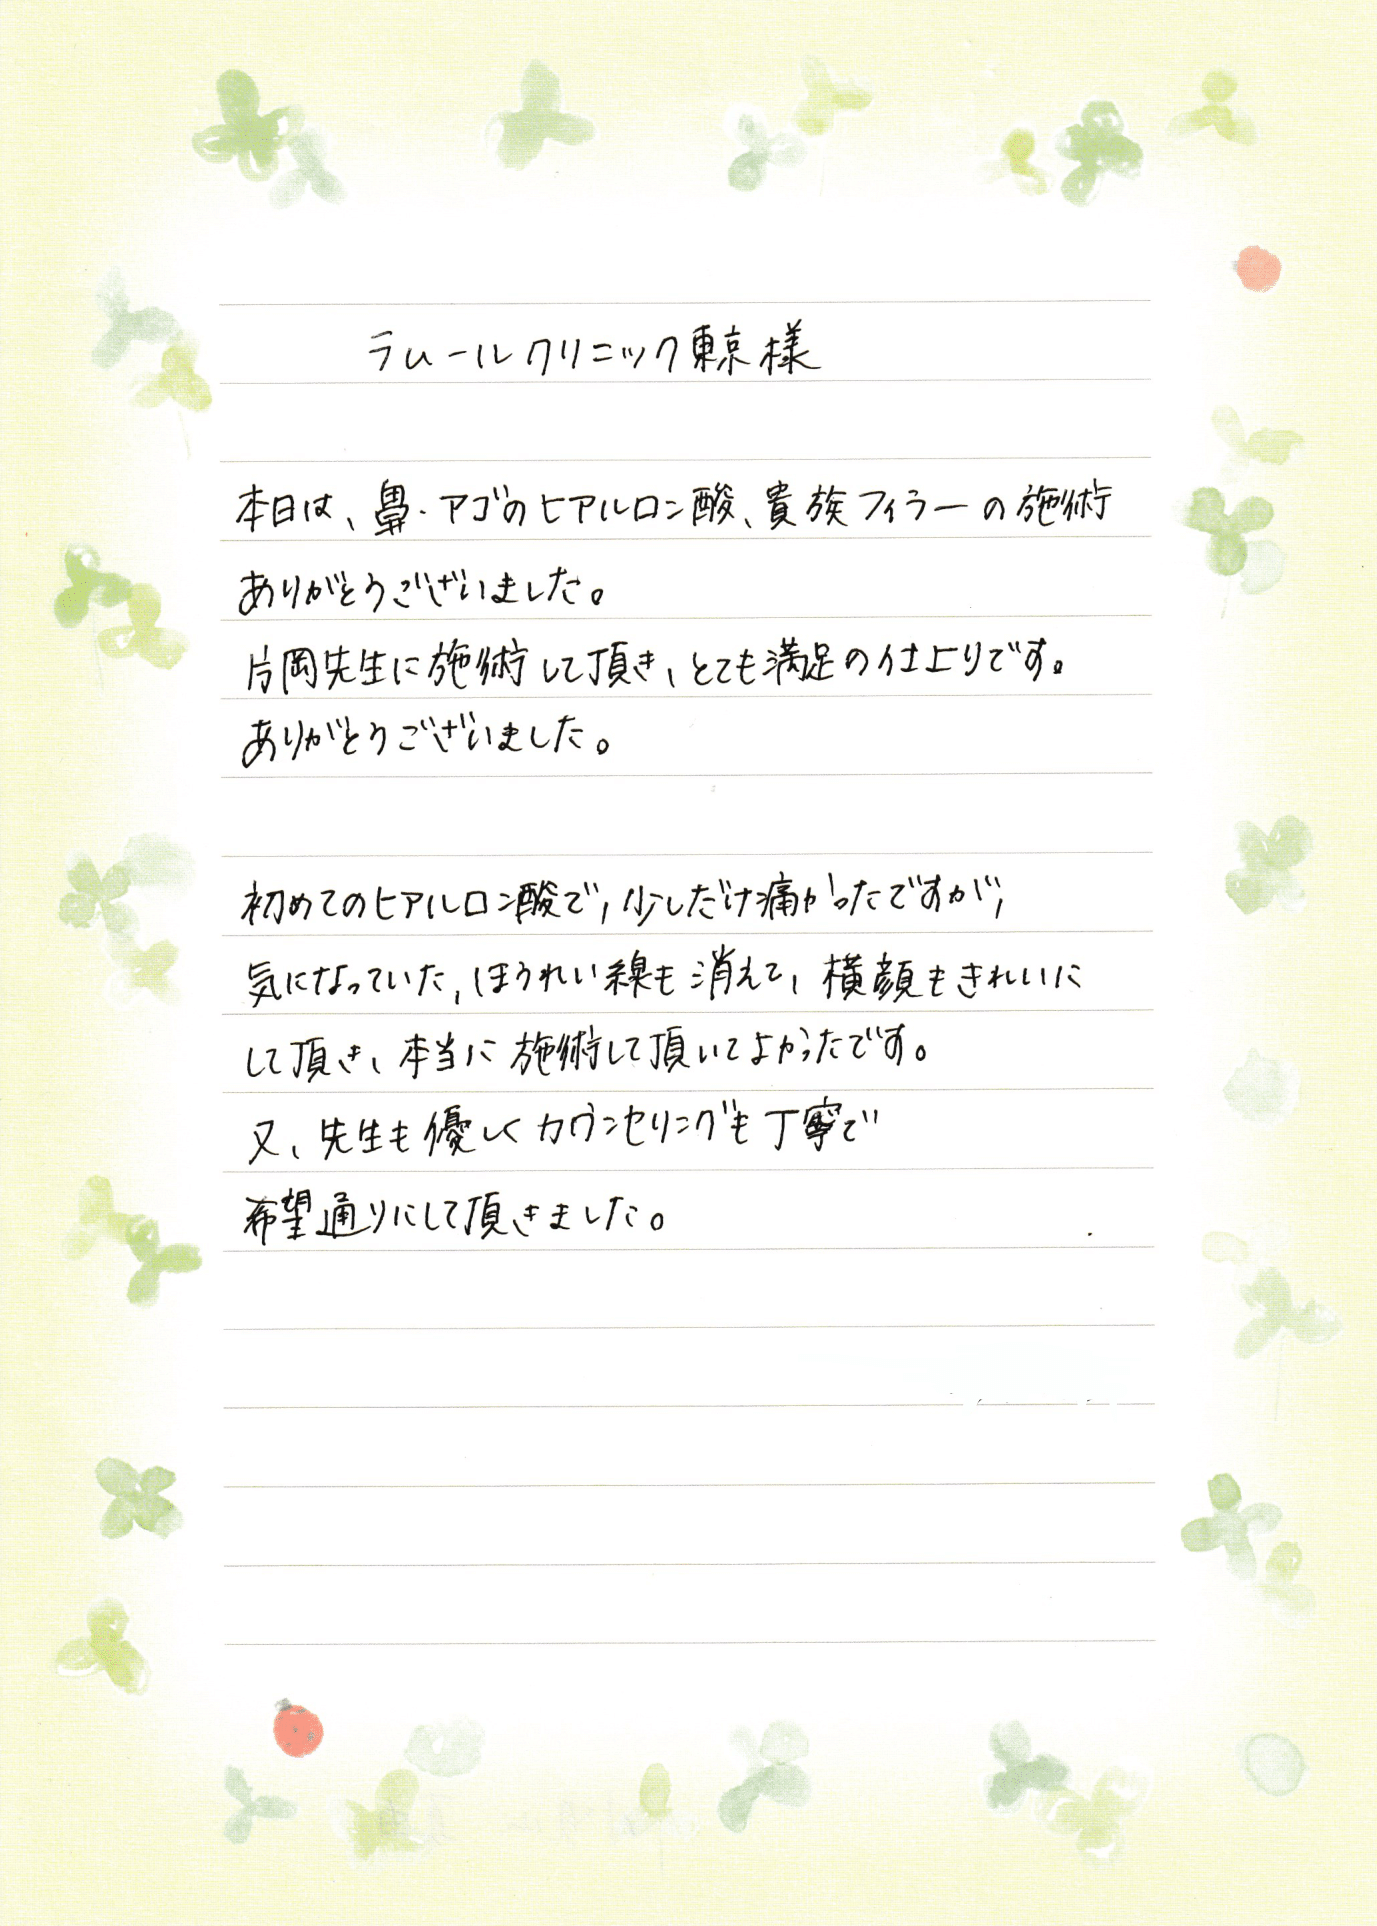 ラムールクリニック東京様
本日は、鼻・アゴのヒアルロン酸、貴族フィラーの施術
ありがとうございました。
片岡先生に施術して頂き、とても満足の仕上りです。
ありがとうございました。
初めてのヒアルロン酸で、少しだけ痛かったですが、
気になっていた、ほうれい線も消えて、横顔もきれいに
して頂き、本当に施術して頂いてよかったです。
又、先生も優しくカウンセリングも丁寧で
希望通りにして頂きました。